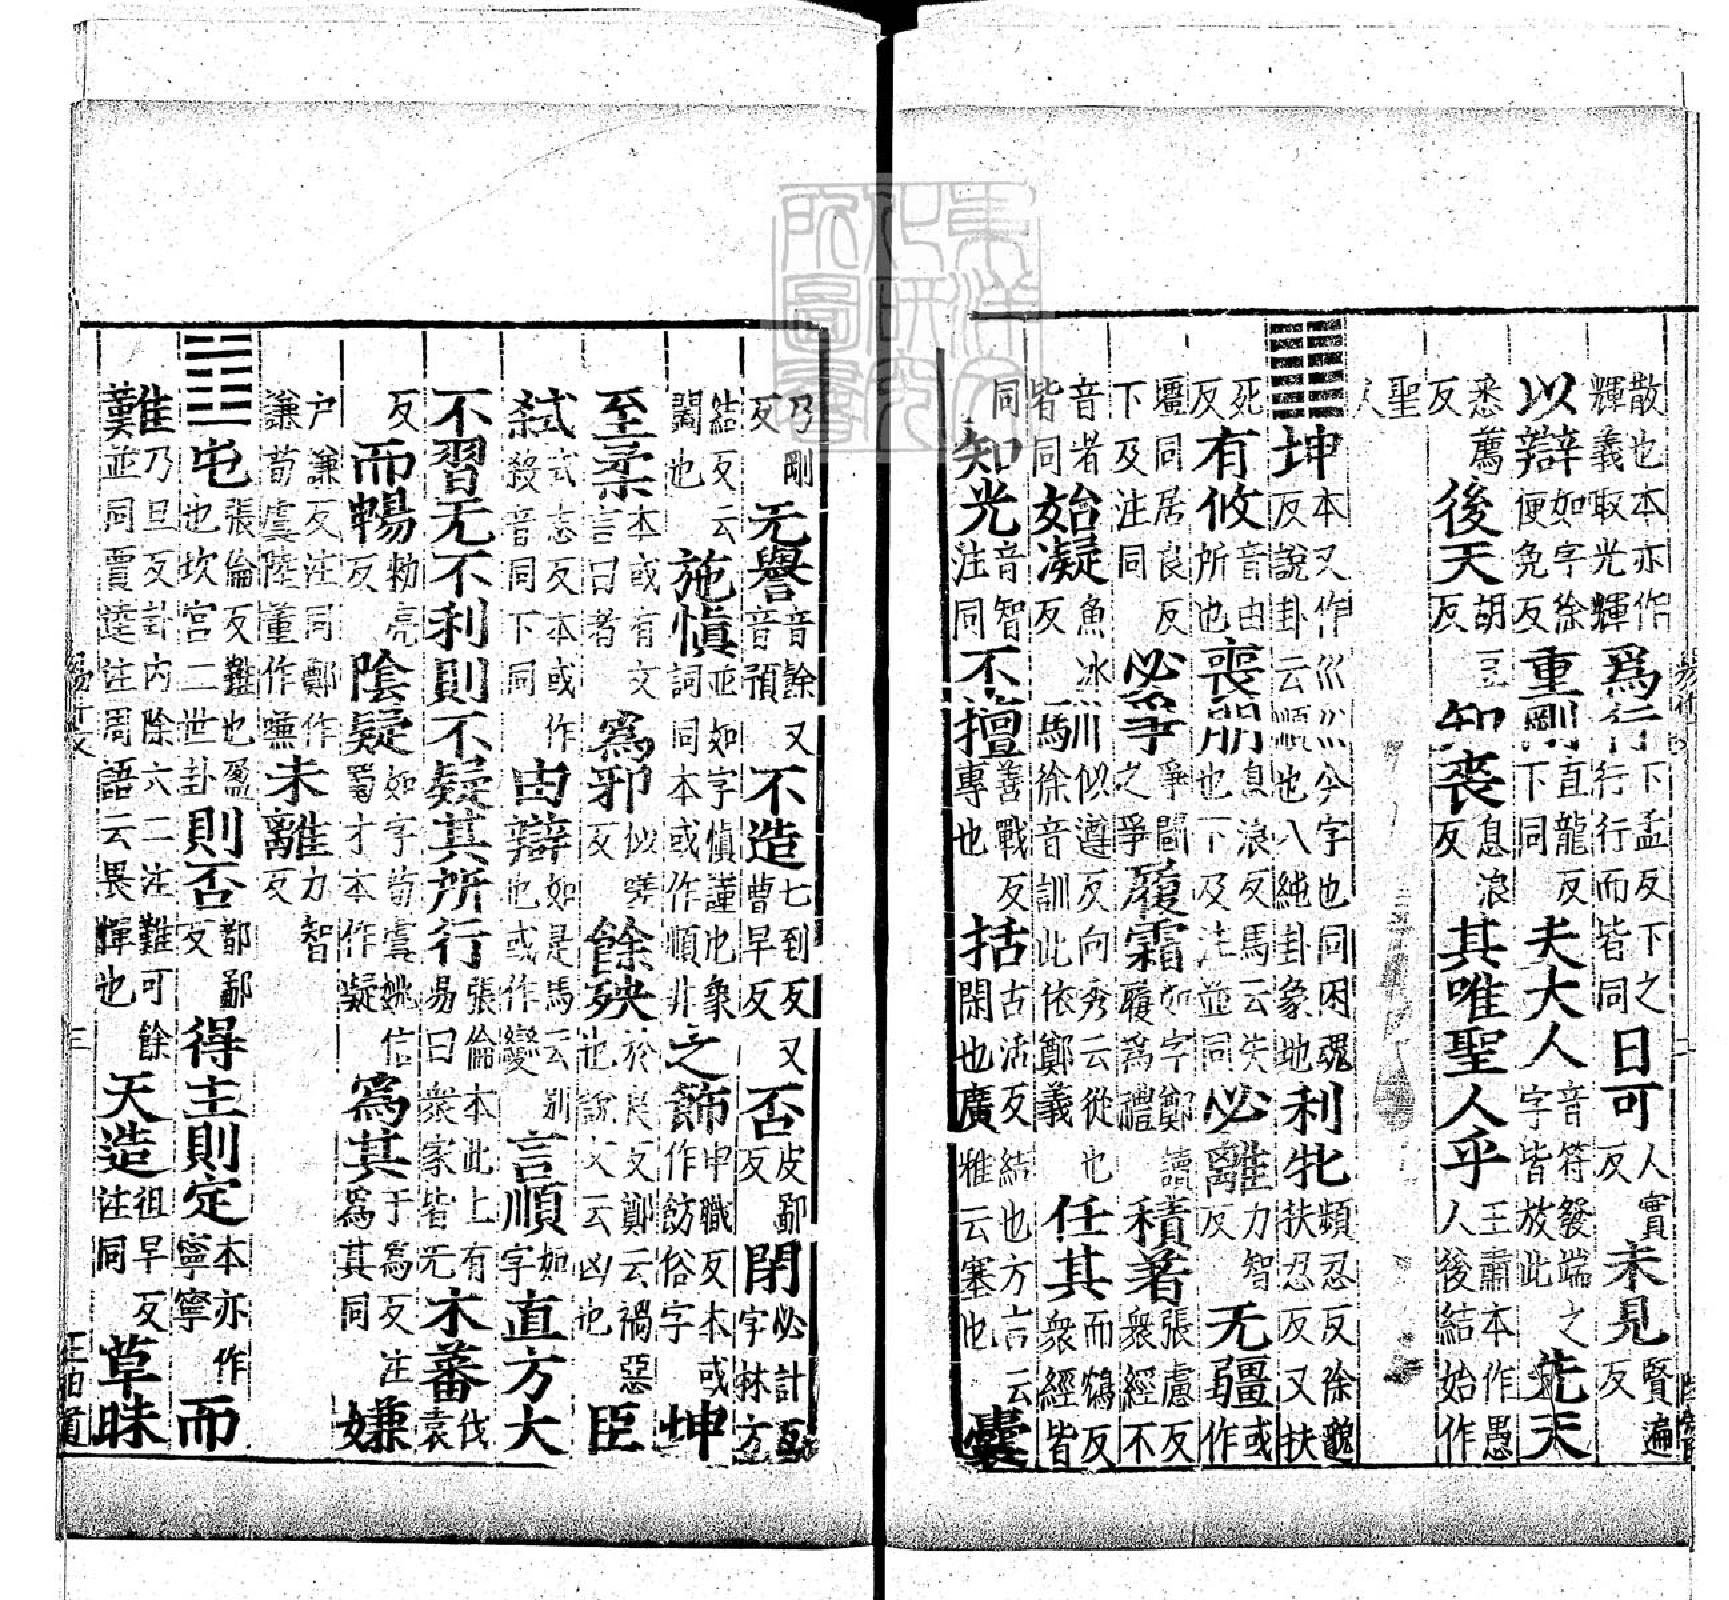 散也本亦作輝義取光輝爲行下孟反下之行行而皆同日可人實反未見賢遍反
以辯如字徐便免反重剛直龍反下同夫大人音符發端之字皆放此先天
悉薦反後天胡豆反知喪息浪反其唯聖人乎王肅本作愚人後結始作
聖人
坤本又作巛巛今字也同困魂反說卦云順也八純卦象地利牝頻忍反徐邈扶忍反又扶
死反有攸音由所也喪朋息浪反馬云失也下及注並同必離力智反无疆或作
壃同居良反下及注同必爭爭鬭之爭履霜如字鄭讀履爲禮積著張慮反衆經不
音者皆同始凝魚冰反馴似遵反向秀云從也徐音訓此依鄭義任其而鴆反衆經皆
同知光音智注同不擅善戰反專也括古活反結也方言云閑也廣雅云塞也囊
乃剛反无譽音餘又音預不造七到反又曹早反否皮鄙反閉必計反字林方
結反云闔也施慎並如字慎謹也象詞同本或作順非之飾申職反本或作飭俗字坤
至柔本或有文言曰者爲邪似嗟反餘殃於良反鄭云禍惡也說文云凶也臣
弒式志反本或作殺音同下同由辯如是馬云別也或作變言順如字直方大
不習无不利則不疑其所行張倫本此上有易曰衆家皆无木蕃伐袁
反而暢勑亮反陰疑如字荀虞姚信蜀才本作凝爲其于爲反注爲其同嫌
户謙反注同鄭作謙荀虞陸董作嗛未離力智反
屯張倫反難也盈也坎宮二世卦則否鄙鄙反得主則定本亦作寧寧而
難乃旦反卦內除六二注難可餘難並同賈逵注周語云畏憚也天造徂早反注同草昧